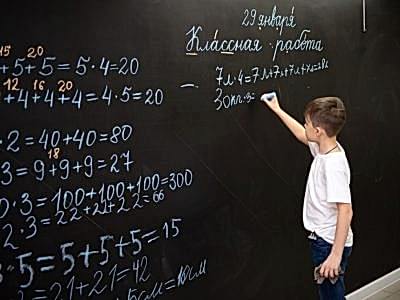 29 января
Классная работа
7л·4=7л+7л+7л+7л=28л
30кг·3=
15 20
+5+5=5·4=20
12 16 20
+4+4+4=4·5=20
·2=40+40=80
18
3=9+9+9=27
0·3=100+100+100=300
2·3=22+22+22=66
·5=5+5+5=15
=21+21=42